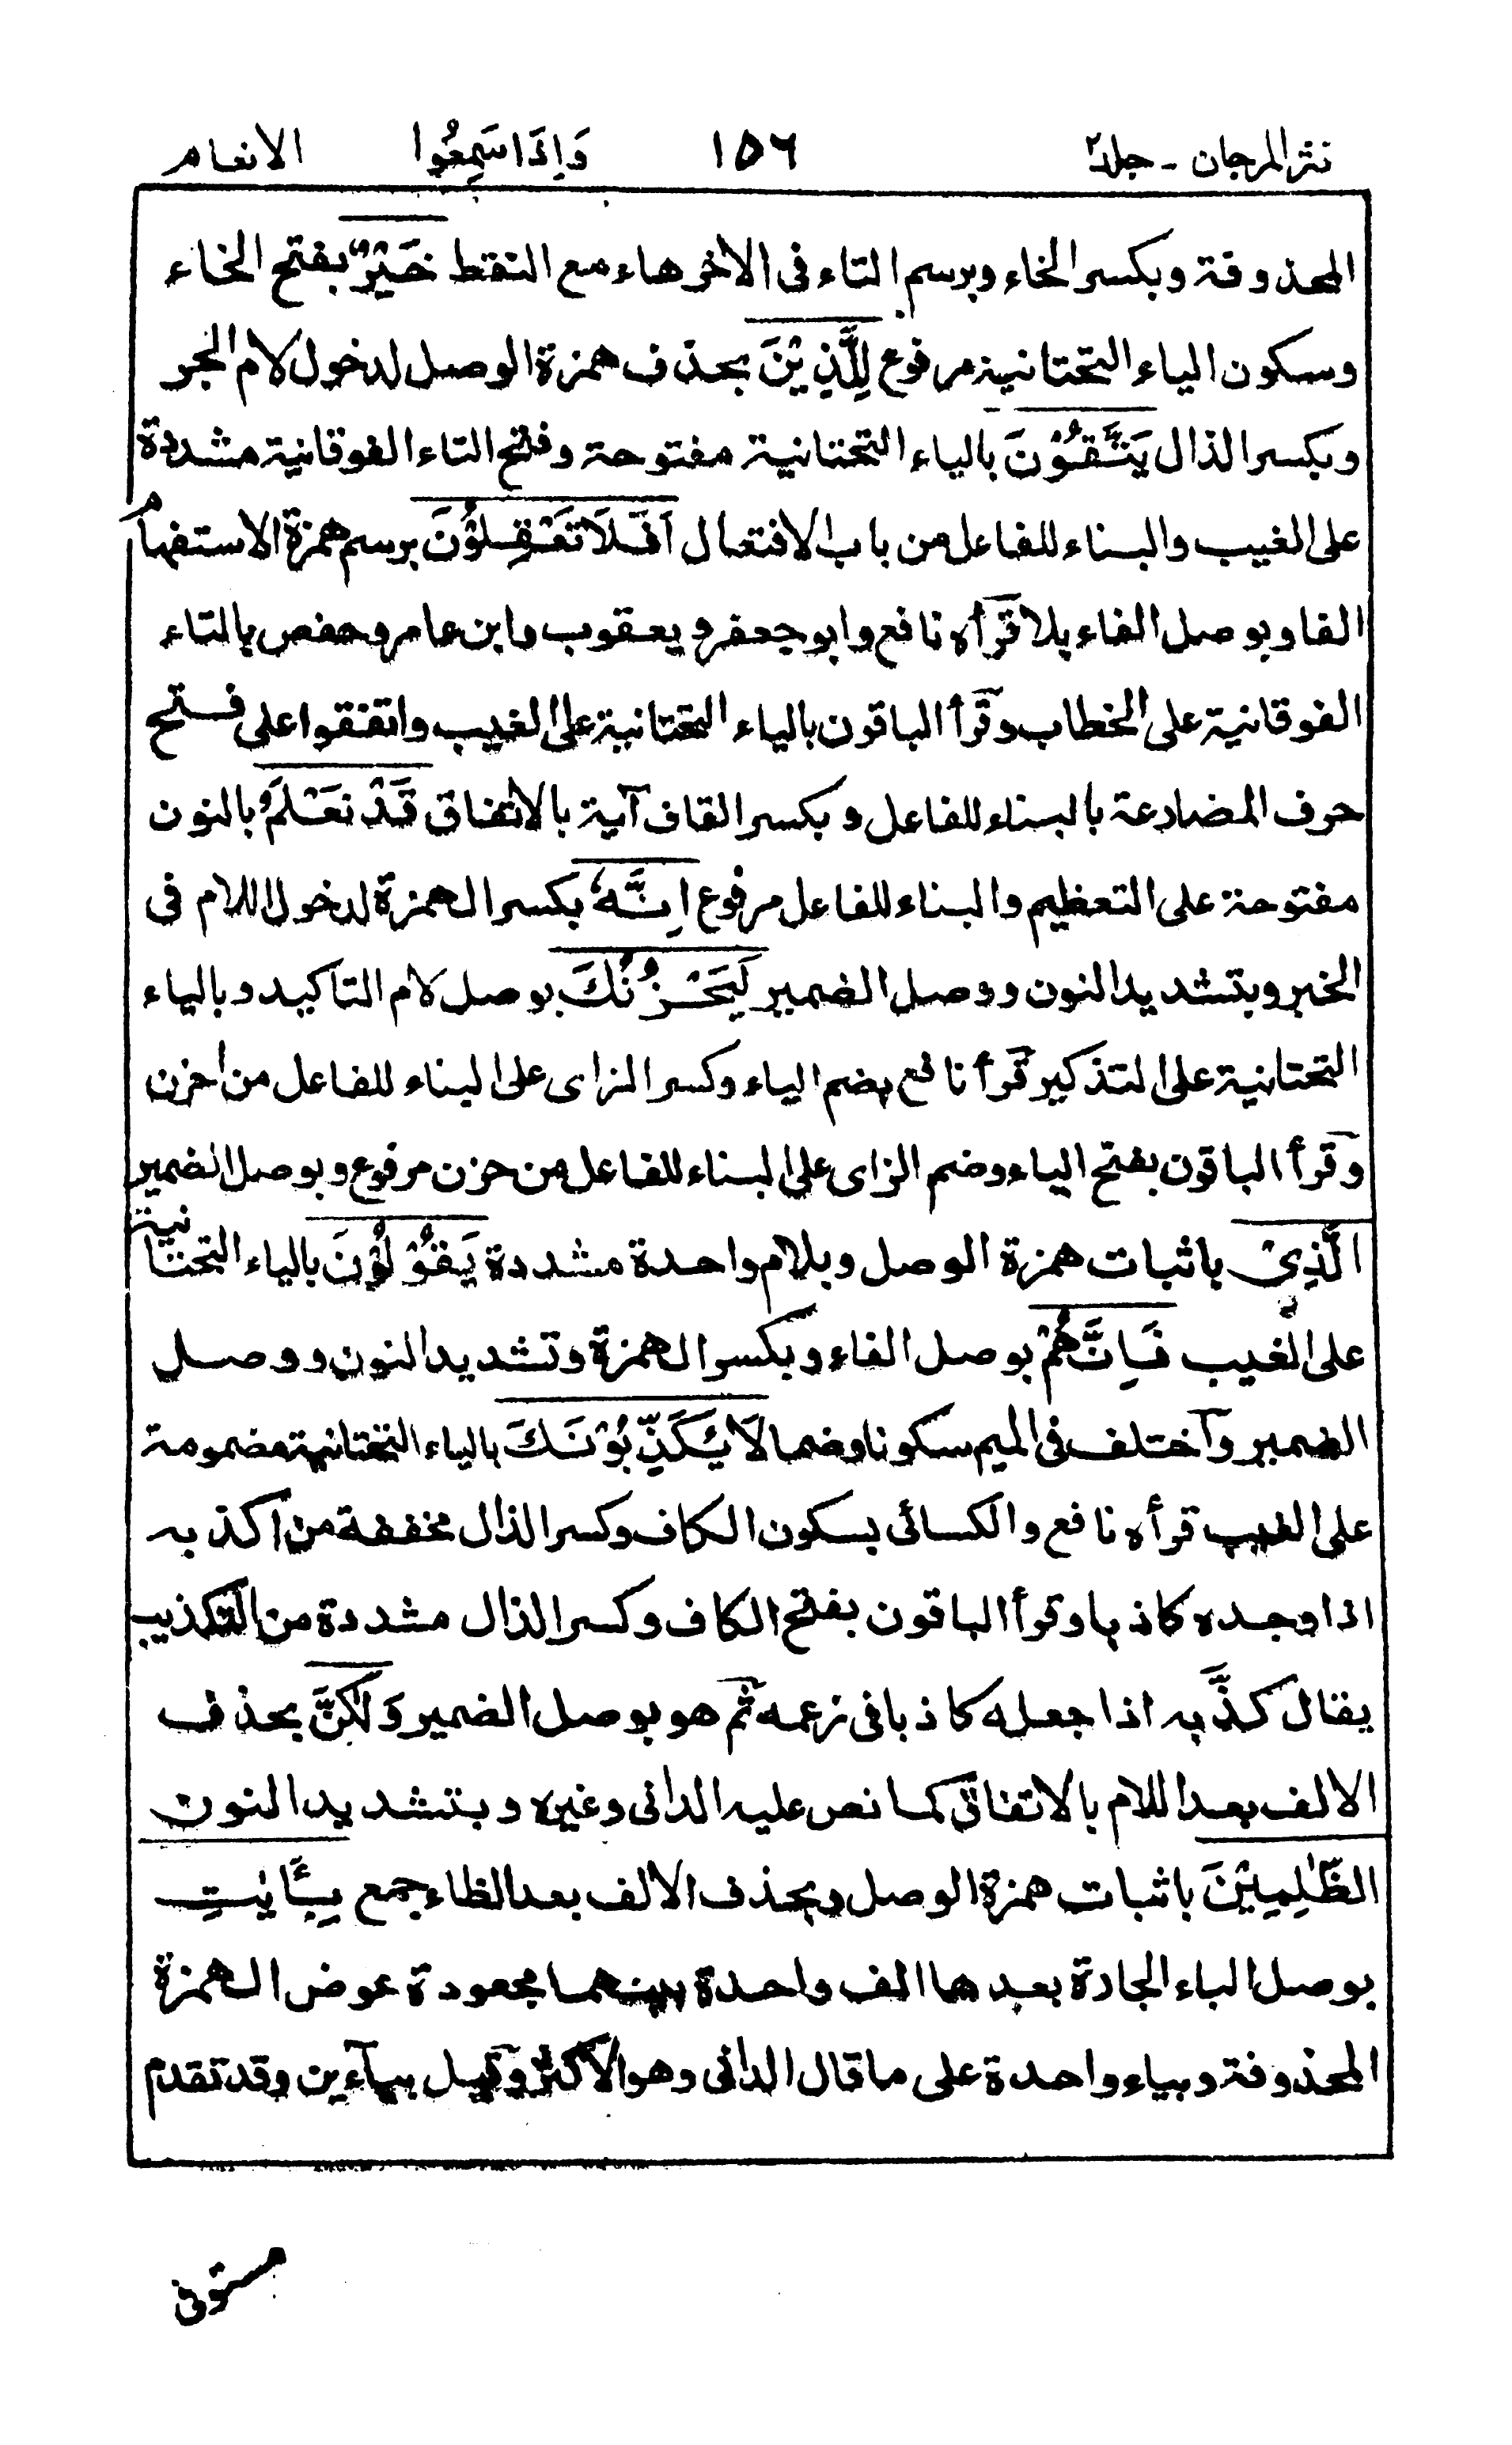 نثر المرجان - جلد ٢ ١٥٦ وَاِذَا سَمِعُوا الانعام
المحذوفة وبكسر الخاء وبرسم التاء فى الاخر هاء مع النقط خَيْرٌ بفتح الخاء
وسكون الياء التحتانية مرفوع لِلَّذِيْنَ بحذف همزة الوصل لدخول لام الجر
وبكسر الذال يَتَّقُوْنَ بالياء التحتانية مفتوحة وفتح التاء الفوقانية مشددة
على الغيب والبناء للفاعل من باب الافتعال اَفَلَا تَعْقِلُوْنَ برسم همزة الاستفهام
الفا وبوصل الفاء بلا قرأه نافع وابو جعفر ويعقوب وابن عامر وحفص بالتاء
الفوقانية على الخطاب وقرأ الباقون بالياء التحتانية على الغيب واتفقوا على فتح
حرف المضارعة بالبناء للفاعل وبكسر القاف آية بالاتفاق قَدْ نَعْلَمُ بالنون
مفتوحة على التعظيم والبناء للفاعل مرفوع اِنَّهٗ بكسر الهمزة لدخول اللام فى
الخبر وبتشديد النون ووصل الضمير لَيَحْزُنُكَ بوصل لام التاكيد وبالياء
التحتانية على التذكير قرأ نافع بضم الياء وكسر الزاى على البناء للفاعل من احزن
وقرأ الباقون بفتح الياء وضم الزاى على البناء للفاعل من حزن مرفوع وبوصل الضمير
الَّذِيْ باثبات همزة الوصل وبلام واحدة مشددة يَقُوْلُوْنَ بالياء التحتانية
على الغيب فَاِنَّهُمْ بوصل الفاء وبكسر الهمزة وتشديد النون ووصل
الضمير وآختلف فى الميم سكونا وضما لَا يُكَذِّبُوْنَكَ بالياء التحتانية مضمومة
على الغيب قرأه نافع والكسائى بسكون الكاف وكسر الذال مخففة من اكذبه
اذا وجده كاذبا وقرأ الباقون بفتح الكاف وكسر الذال مشددة من التكذيب
يقال كذَّبه اذا جعله كاذبا فى زعمه ثم هو بوصل الضمير وَلٰكِنَّ بحذف
الالف بعد اللام بالاتفاق كما نص عليه الدانى وغيره وبتشديد النون
الظّٰلِمِيْنَ باثبات همزة الوصل وبحذف الالف بعد الظاء جمع بِـَٔايٰتِ
بوصل الباء الجارة بعدها الف واحدة بينهما مجعودة عوض الهمزة
المحذوفة وبياء واحدة على ما قال الدانى وهو الاكثر وقيل بيآءين وقد تقدم
مستوفى